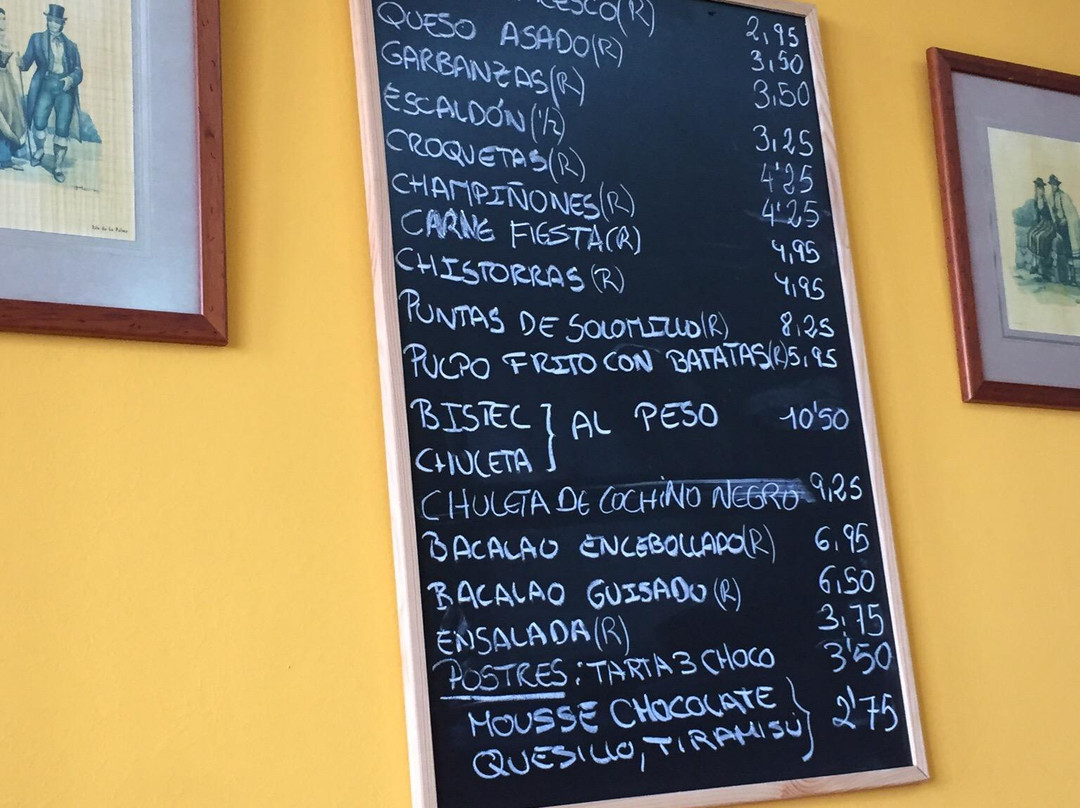 ESCO(R) 2,95
QUESO ASADO(R) 3,50
GARBANZAS(R) 3,50
ESCALDÓN(1/2) 3,25
CROQUETAS(R) 4'25
CHAMPIÑONES(R) 4'25
CARNE FIESTA(R) 4,95
CHISTORRAS (R) 4,95
PUNTAS DE SOLOMILLO(R) 8,25
PULPO FRITO CON BATATAS(R) 5,95
BISTEC } AL PESO 10'50
CHULETA
CHULETA DE COCHINO NEGRO 9,25
BACALAO ENCEBOLLADO(R) 6,95
BACALAO GUISADO (R) 6,50
ENSALADA(R) 3,75
POSTRES: TARTA 3 CHOCO 3'50
MOUSSE CHOCOLATE } 2'75
QUESILLO, TIRAMISÚ